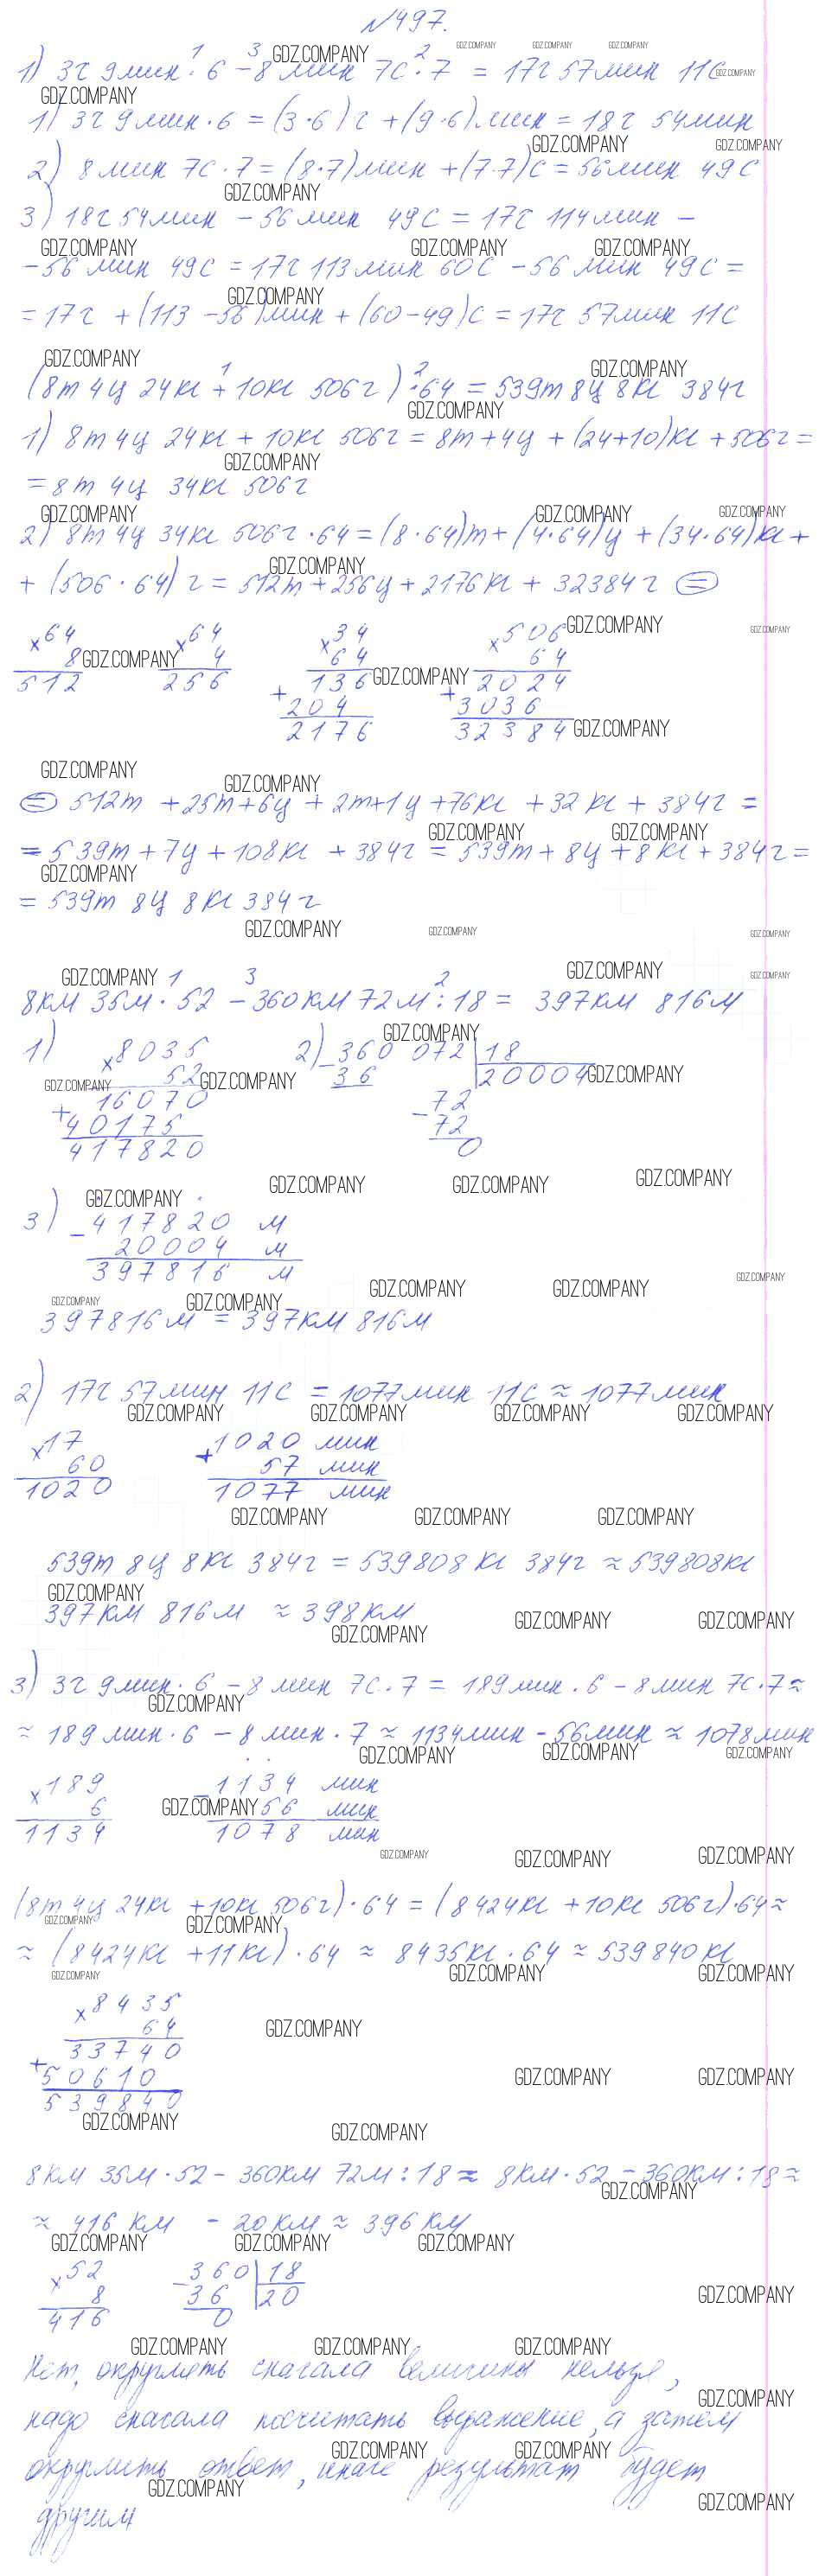 №497.
1) 3ч 9мин · 6 - 8 мин 7с · 7 = 17ч 57мин 11с
1) 3ч 9мин · 6 = (3 · 6) ч + (9 · 6) мин = 18ч 54мин
2) 8мин 7с · 7 = (8 · 7) мин + (7 · 7) с = 56мин 49с
3) 18ч 54мин - 56мин 49с = 17ч 114мин -
- 56 мин 49с = 17ч 113мин 60с - 56 мин 49с =
= 17ч + (113 - 56) мин + (60 - 49) с = 17ч 57мин 11с
(8т 4ц 24кг + 10кг 506г) · 64 = 539т 8ц 8кг 384г
1) 8т 4ц 24кг + 10кг 506г = 8т + 4ц + (24+10)кг + 506г =
= 8т 4ц 34кг 506г
2) 8т 4ц 34кг 506г · 64 = (8 · 64)т + (4 · 64)ц + (34 · 64)кг +
+ (506 · 64) г = 512т + 256ц + 2176кг + 32384г =
×64 ×64 ×34 ×506
8 4 64 64
512 256 136 2024
+ 204 + 3036
2176 32384
= 512т + 25т + 6ц + 2т + 1ц + 76кг + 32кг + 384г =
= 539т + 7ц + 108кг + 384г = 539т + 8ц + 8кг + 384г =
= 539т 8ц 8кг 384г
8км 35м · 52 - 360км 72м : 18 = 397км 816м
1) ×8035 2) -360 072 | 18
52 36 20004
16070 -72
+ 40175 72
417820 0
3) -417820 м
20004 м
397816 м
397816м = 397км 816м
2) 17ч 57мин 11с = 1077мин 11с ≈ 1077мин
×17 +1020 мин
60 57 мин
1020 1077 мин
539т 8ц 8кг 384г = 539808кг 384г ≈ 539808кг
397км 816м ≈ 398км
3) 3ч 9мин · 6 - 8 мин 7с · 7 = 189мин · 6 - 8мин 7с · 7 ≈
≈ 189 мин · 6 - 8 мин · 7 ≈ 1134мин - 56мин ≈ 1078мин
×189 -1134 мин
6 56 мин
1134 1078 мин
(8т 4ц 24кг + 10кг 506г) · 64 = (8424кг + 10кг 506г) · 64 ≈
≈ (8424кг + 11кг) · 64 ≈ 8435кг · 64 ≈ 539840кг
×8435
64
33740
+50610
539840
8км 35м · 52 - 360км 72м : 18 ≈ 8км · 52 - 360км : 18 ≈
≈ 416 км - 20км ≈ 396км
×52 -360 | 18
8 36 20
416 0
Нет, округлить сначала величины нельзя,
надо сначала посчитать выражение, а затем
округлить ответ, иначе результат будет
другим
GDZ.COMPANY